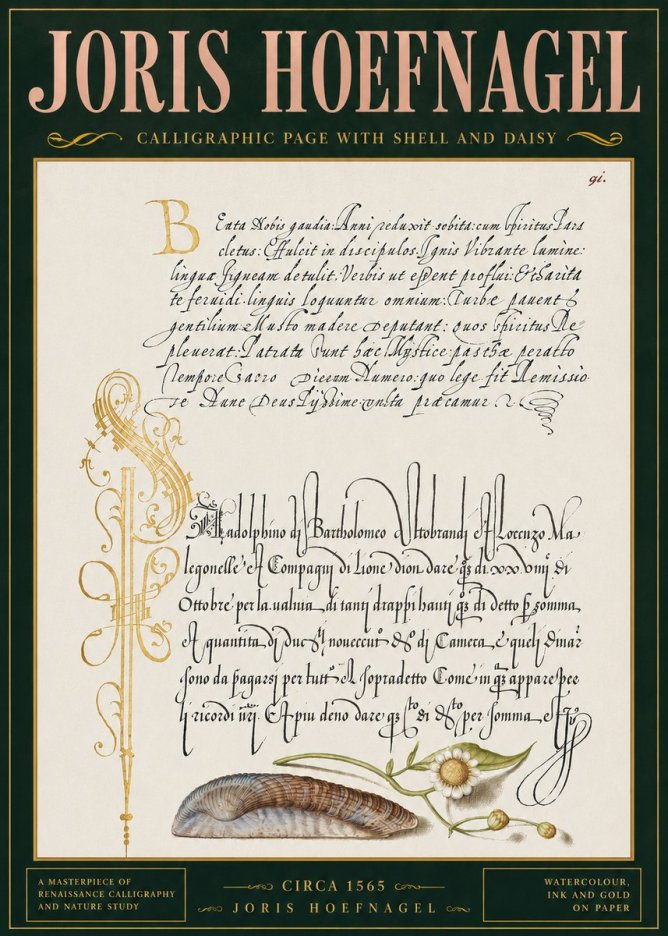 JORIS HOEFNAGEL
CALLIGRAPHIC PAGE WITH SHELL AND DAISY
gi.
Beata Nobis gaudia: Anni reduxit sobita: cum spiritus Para
cletus: Effulcit in discipulos. Ignis Vibrante lumine:
linguæ figneam detulit: Verbis ut essent proflui: & Charita
te feruidi: linguis loquuntur omnium: Turbæ pauent &
gentilium Musto madere Deputant: quos spiritus Re
pleuerat: Patrata sunt hæc Mystice: paschæ peratto
Tempore Sacro Dierum Numero: quo lege fit Remissio
Nunc Deus Pijssime precamur
Radolphino di Bartholomeo Altobrandi et Lorenzo Ma
legonelle et Compagni di Lione dion dare di xxviij di
Ottobre per la ualuta di tanti drappi hauti di detto somma
et quantita di nouecento di Camera, e queli dinar
sono da pagarsi per tutto el sopradetto Come in appare per
li ricordi Et piu deno dare di per somma e
A MASTERPIECE OF
RENAISSANCE CALLIGRAPHY
AND NATURE STUDY
CIRCA 1565
JORIS HOEFNAGEL
WATERCOLOUR,
INK AND GOLD
ON PAPER